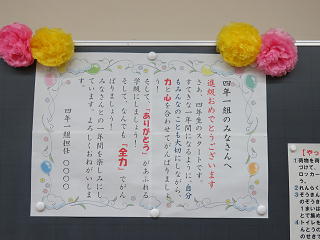 四年一組のみなさんへ
進級おめでとうございます
さあ、四年生のスタートです。
すてきな一年間になるように、自分
もみんなのことも大切にしながら、
力と心を合わせてがんばりましょ
う!
そして、「ありがとう」があふれる
学級にしましょう!
そして、なんでも「全力」でがん
ばりましょう!
みなさんとの一年間を楽しみにし
ています。よろしくおねがいします。
四年一組担任 〇〇〇〇